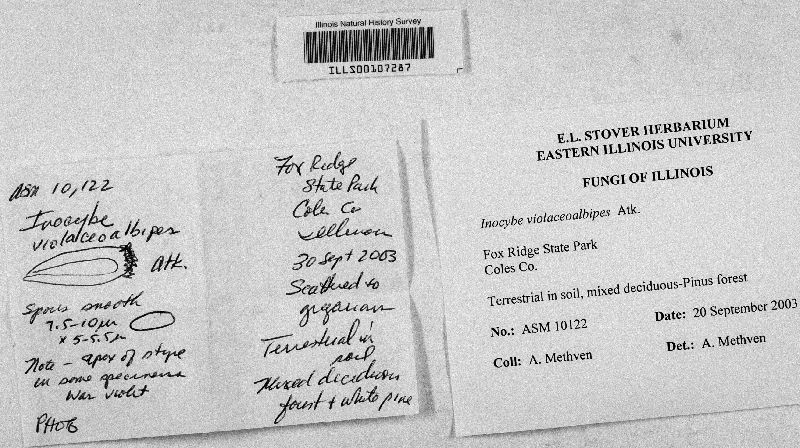 Illinois Natural History Survey
ILLS00107287
ASM 10,122
Inocybe
violaceoalbipes
Atk.
Spores smooth
7.5-10µm
x 5-5.5µm
Note - apex of stipe
in some specimens
was violet
PHOTO
Fox Ridge
State Park
Coles Co
30 Sept 2003
Scattered to
gregarious
Terrestrial in
soil
Mixed deciduous
forest + white pine
E.L. STOVER HERBARIUM
EASTERN ILLINOIS UNIVERSITY
FUNGI OF ILLINOIS
Inocybe violaceoalbipes Atk.
Fox Ridge State Park
Coles Co.
Terrestrial in soil, mixed deciduous-Pinus forest
No.: ASM 10122 Date: 20 September 2003
Coll: A. Methven Det.: A. Methven